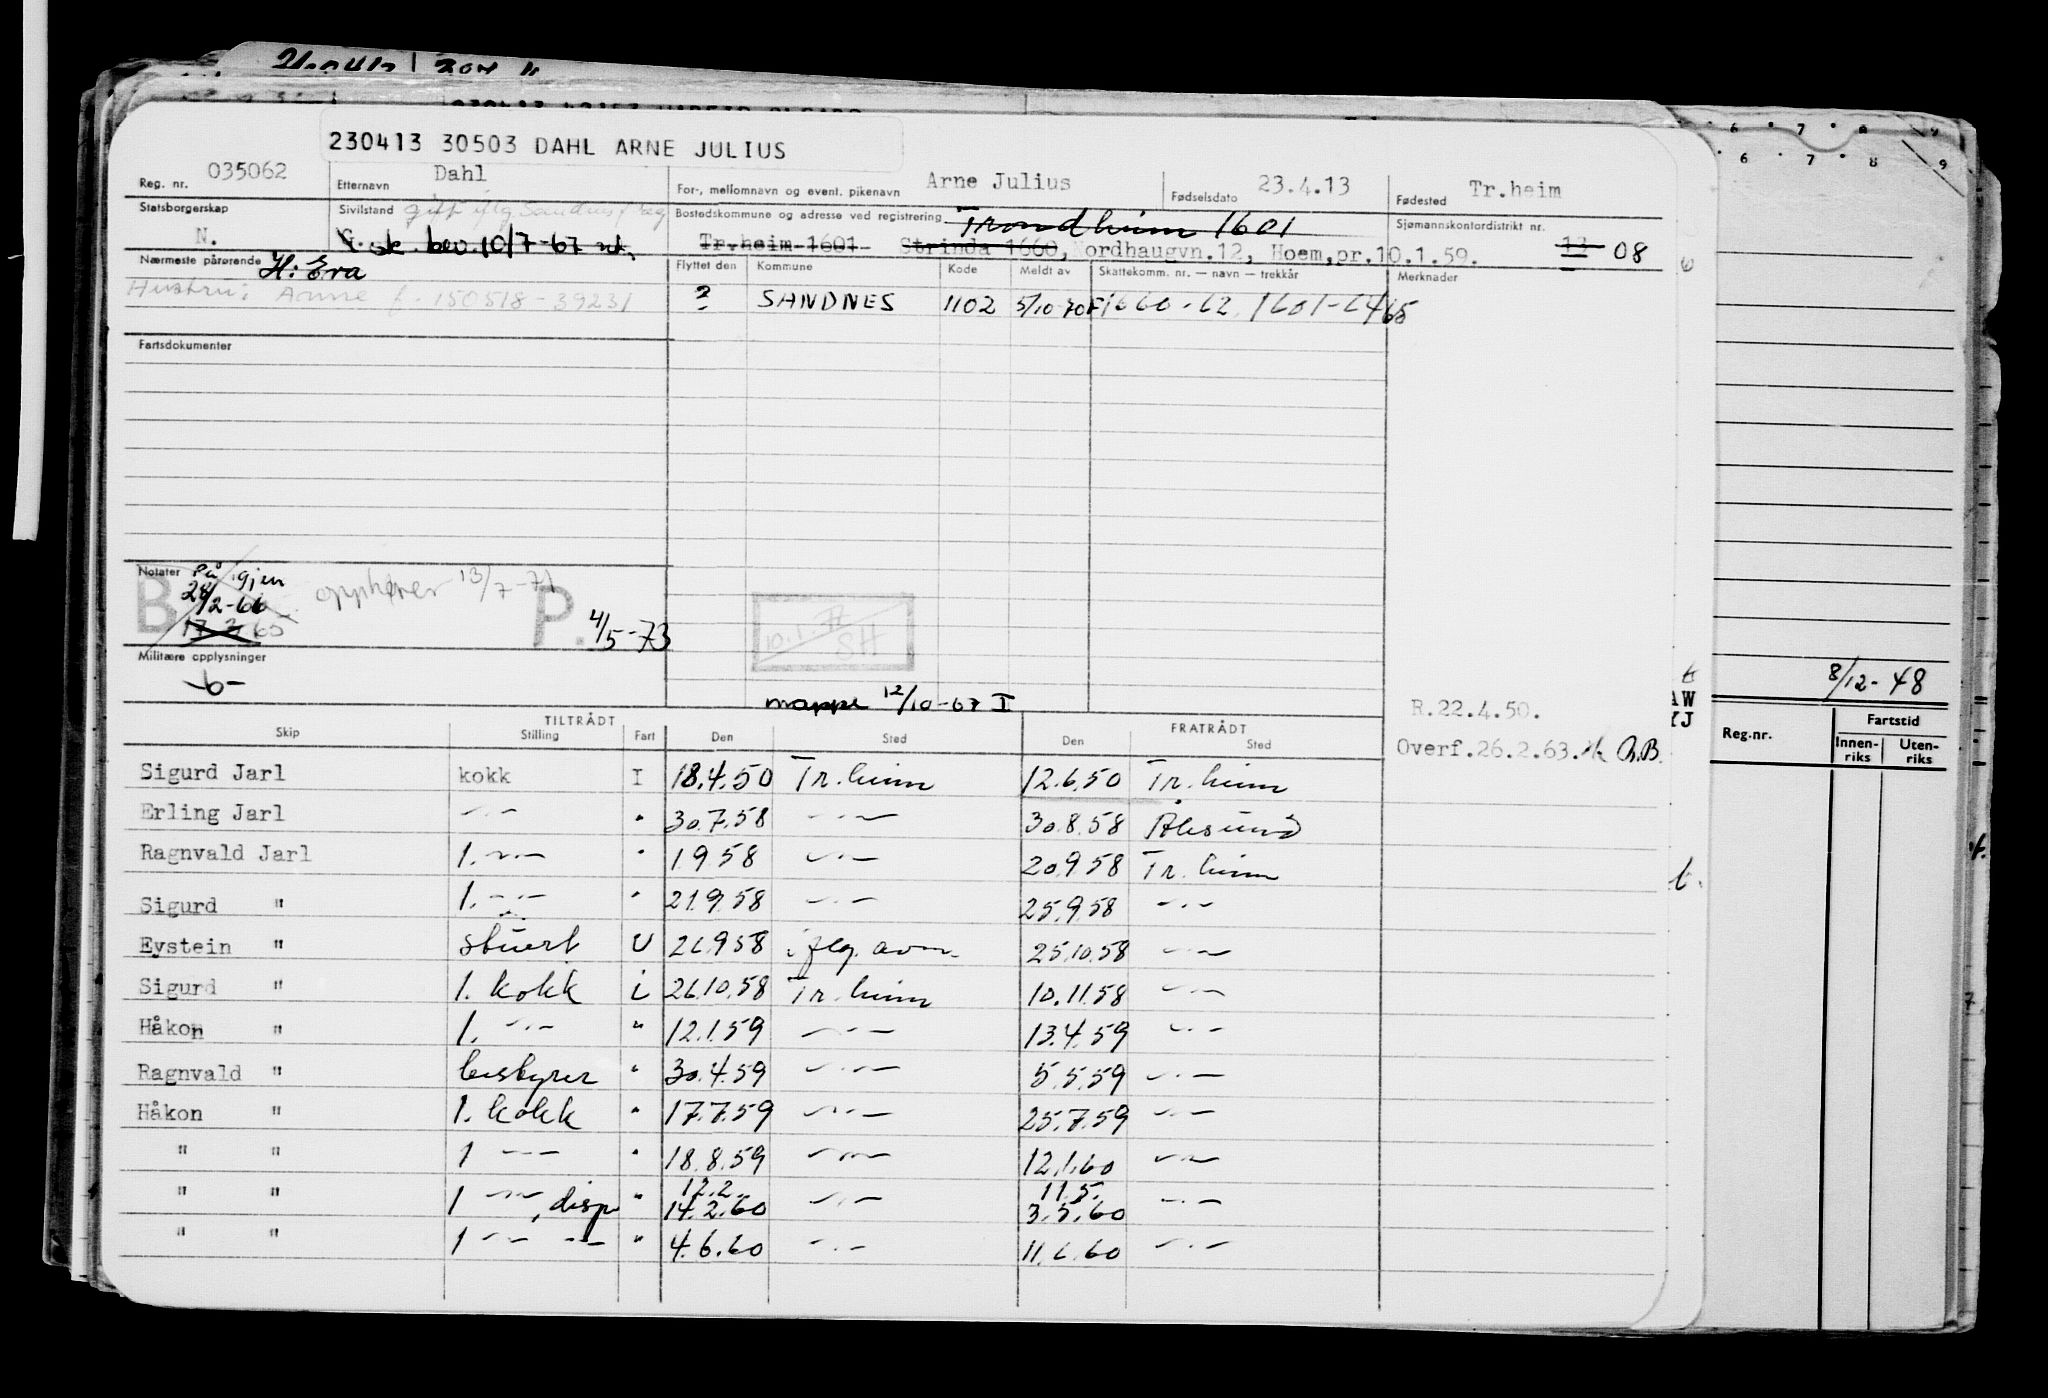 230413 30503 DAHL ARNE JULIUS
Reg. nr. 035062 Etternavn Dahl For-, mellomnavn og event. pikenavn Arne Julius Fødselsdato 23.4.13 Fødested Tr.heim
Statsborgerskap N. Sivilstand gift iflg Sandnes G. sk. bev. 10/7-67 Bostedskommune og adresse ved registrering Trondheim 1601 Sjømannskontordistrikt nr.
Tr.heim 1601 Strinda 1660, Nordhaugvn.12, Hoem, pr.10.1.59. 13 08
Nærmeste pårørende H: Eva Flyttet den Kommune Kode Meldt av Skattekomm. nr. — navn — trekkår Merknader
Hustru: Anne f. 150518-39231 ? SANDNES 1102 5/10-70 F 1660-62, 1601-64/65
Fartsdokumenter
Notater På igjen
B 28/2-66 opphører 13/7-71
17-3-65 P. 4/5-73 10.1.72 SH
Militære opplysninger
-6-
mappe 12/10-67 I
8/12-48
R.22.4.50.
TILTRÅDT FRATRÅDT
Skip Stilling Fart Den Sted Den Sted
Overf.26.2.63. R.B.
Reg.nr. Fartstid
Innenriks Utenriks
Sigurd Jarl kokk I 18.4.50 Tr.heim 12.6.50 Tr.heim
Erling Jarl -"- " 30.7.58 -"- 30.8.58 Ålesund
Ragnvald Jarl 1. -"- " 1.9.58 -"- 20.9.58 Tr.heim
Sigurd " 1. -"- " 21.9.58 -"- 25.9.58 -"-
Eystein " stuert U 26.9.58 iflg. avm. 25.10.58 -"-
Sigurd " 1. kokk i 26.10.58 Tr.heim 10.11.58 -"-
Håkon " 1. -"- " 12.1.59 -"- 13.4.59 -"-
Ragnvald " bestyrer " 30.4.59 -"- 5.5.59 -"-
Håkon " 1. kokk " 17.7.59 -"- 25.7.59 -"-
" " 1 -"- " 18.8.59 -"- 12.1.60 -"-
" " 1 -"-, disp " 12.2. 14.2.60 -"- 11.5. 3.5.60 -"-
" " 1 -"- -"- " 4.6.60 -"- 11.6.60 -"-